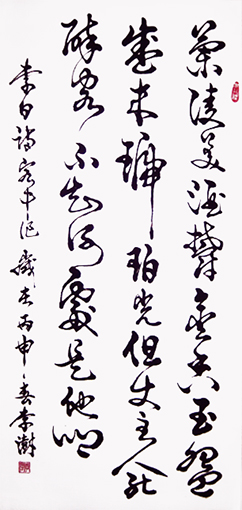 蘭陵美酒欝金香玉盌
盛来琥珀光但使主人能
醉客不知何處是他鄉
李白詩客中作歲在丙申春李澍